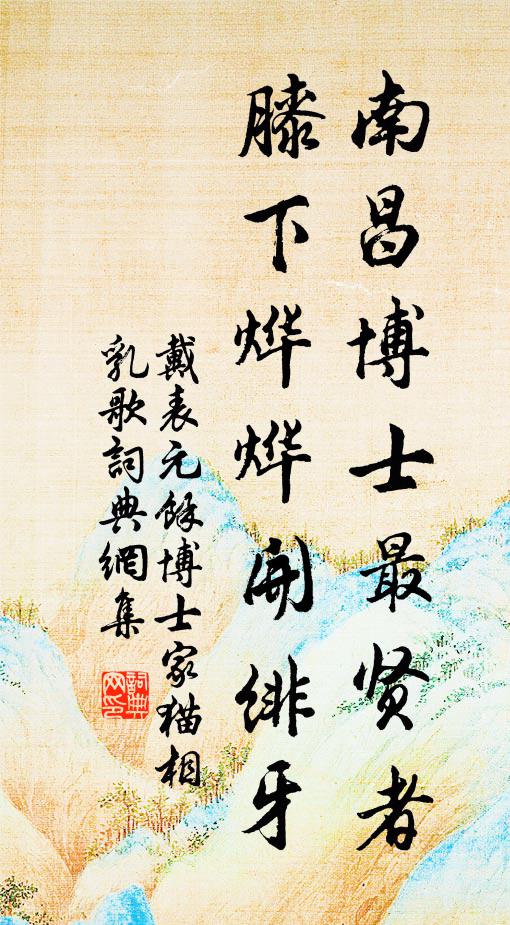 南昌博士最贤者
膝下烨烨开绯牙
戴表元馀博士家猫相
乳歌词典網集
詞典网印